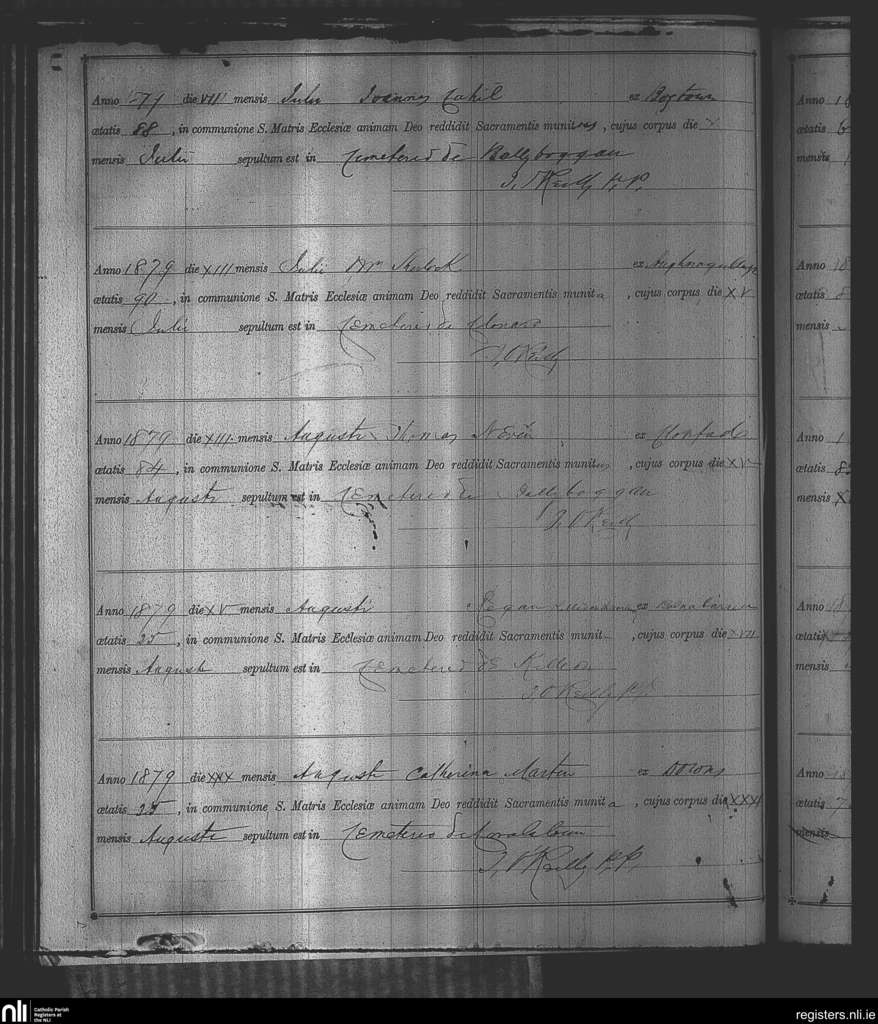 Anno '79 die VII mensis Julii Joannes Cahil ex Bogtown
ætatis 88, in communione S. Matris Ecclesiæ animam Deo reddidit Sacramentis munitus, cujus corpus die X
mensis Julii sepultum est in Cemeterio de Ballyboggan
J. O'Reilly P.P.
Anno 1879 die XIII mensis Julii ex
ætatis 90, in communione S. Matris Ecclesiæ animam Deo reddidit Sacramentis munita, cujus corpus die XV
mensis Julii sepultum est in Cemeterio de Clonard
J. O'Reilly
Anno 1879 die XIII mensis Augusti Thomas Nevin ex
ætatis 84, in communione S. Matris Ecclesiæ animam Deo reddidit Sacramentis munitus, cujus corpus die XV
mensis Augusti sepultum est in Cemeterio de Ballyboggan
J. O'Reilly
Anno 1879 die XV mensis Augusti Regan ex
ætatis 25, in communione S. Matris Ecclesiæ animam Deo reddidit Sacramentis munit, cujus corpus die XVII
mensis Augusti sepultum est in Cemeterio de
J. O'Reilly P.P.
Anno 1879 die XXX mensis Augusti Catherina Martin ex Downs
ætatis 25, in communione S. Matris Ecclesiæ animam Deo reddidit Sacramentis munita, cujus corpus die XXXI
mensis Augusti sepultum est in Cemeterio de
J. O'Reilly P.P.
Anno 18
ætatis
mensis
Anno 18
ætatis
mensis
Anno 1
ætatis
mensis X
Anno 18
ætatis
mensis
Anno
ætatis 7
mensis
nli Catholic Parish
Registers at
the NLI
registers.nli.ie